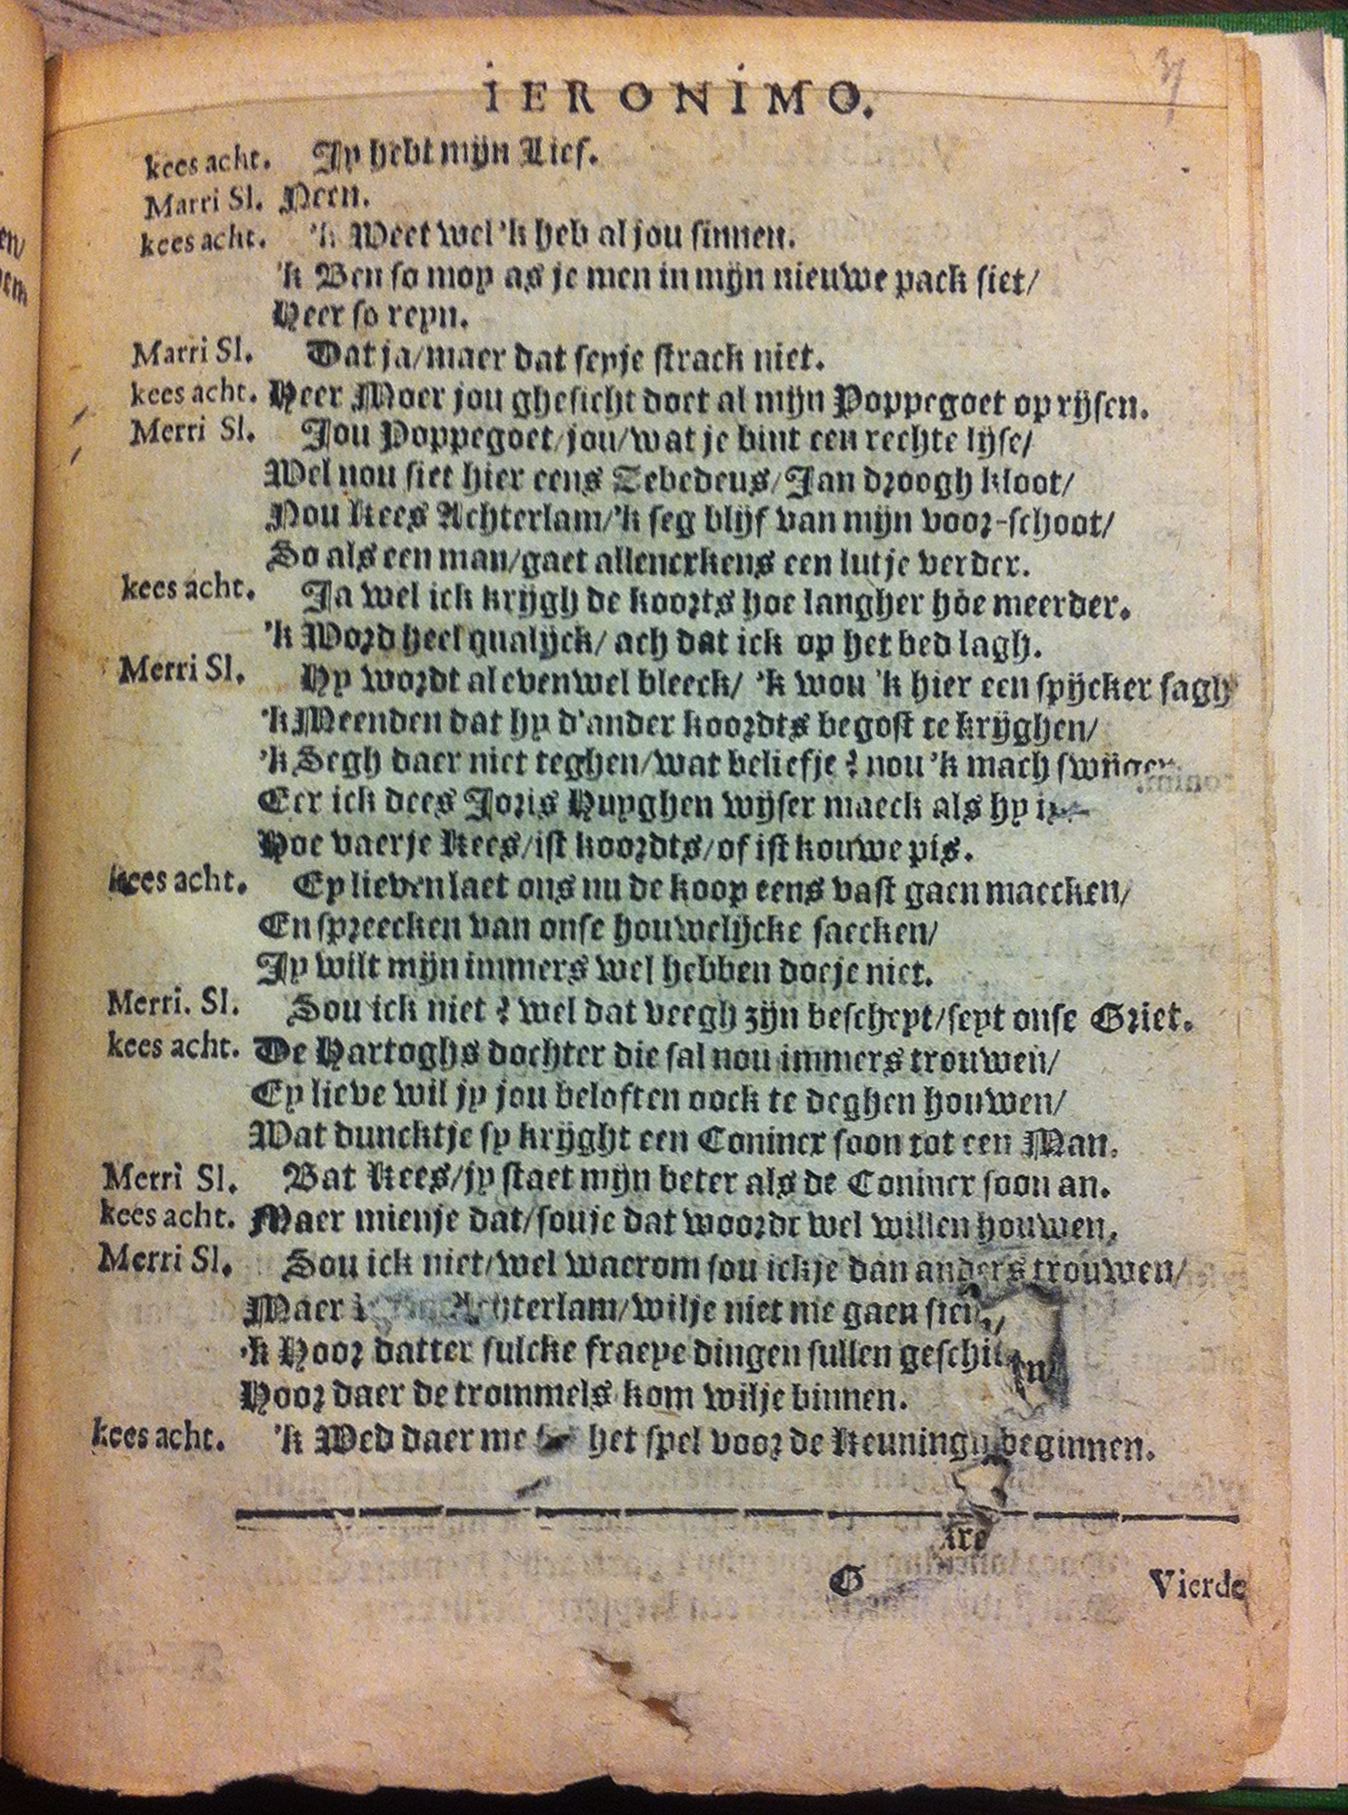 IERONIMO.
37
kees acht. Jy hebt mijn Lief.
Marri Sl. Neen.
kees acht. 'k Weet wel 'k heb al jou sinnen.
'k Ben so moy as je men in mijn nieuwe pack siet/
Heer so reyn.
Marri Sl. Dat ja/maer dat seyje strack niet.
kees acht. Heer Moer jou ghesicht doet al mijn Poppegoet oprijsen.
Merri Sl. Jou Poppegoet/jou/wat je bint een rechte lijse/
Wel nou siet hier eens Zebedeus/Jan droogh kloot/
Nou Kees Achterlam/'k seg blijf van mijn voor-schoot/
So als een man/gaet allenexkens een lutje verder.
kees acht. Ja wel ick krijgh de koorts hoe langher hoe meerder.
'k Word heel qualijck/ ach dat ick op het bed lagh.
Merri Sl. Hy wordt al evenwel bleeck/ 'k wou 'k hier een spijcker sagh
'k Meenden dat hy d'ander koordts begost te krijghen/
'k Segh daer niet teghen/wat beliefje? nou 'k mach swijgen
Eer ick dees Joris Huyghen wijser maeck als hy is
Hoe vaerje Kees/ist koordts/of ist kouwe pis.
kees acht. Ey lieven laet ons nu de koop eens vast gaen maecken/
En spreecken van onse houwelijcke saecken/
Jy wilt mijn immers wel hebben doeje niet.
Merri. Sl. Sou ick niet? wel dat veegh zijn bescheyt/seyt onse Griet.
kees acht. De Hartoghs dochter die sal nou immers trouwen/
Ey lieve wil jy jou beloften oock te deghen houwen/
Wat duncktje sy krijght een Conincx soon tot een Man.
Merri Sl. Bat Kees/jy staet mijn beter als de Conincx soon an.
kees acht. Maer mienje dat/souje dat woordt wel willen houwen.
Merri Sl. Sou ick niet/wel waerom sou ickje dan anders trouwen/
Maer Achterlam/wilje niet me gaen sien,
'k Hoor datter sulcke fraeye dingen sullen geschien
Hoor daer de trommels kom wilje binnen.
kees acht. 'k Wed daer me het spel voor de Keuningh beginnen.
G
Vierde